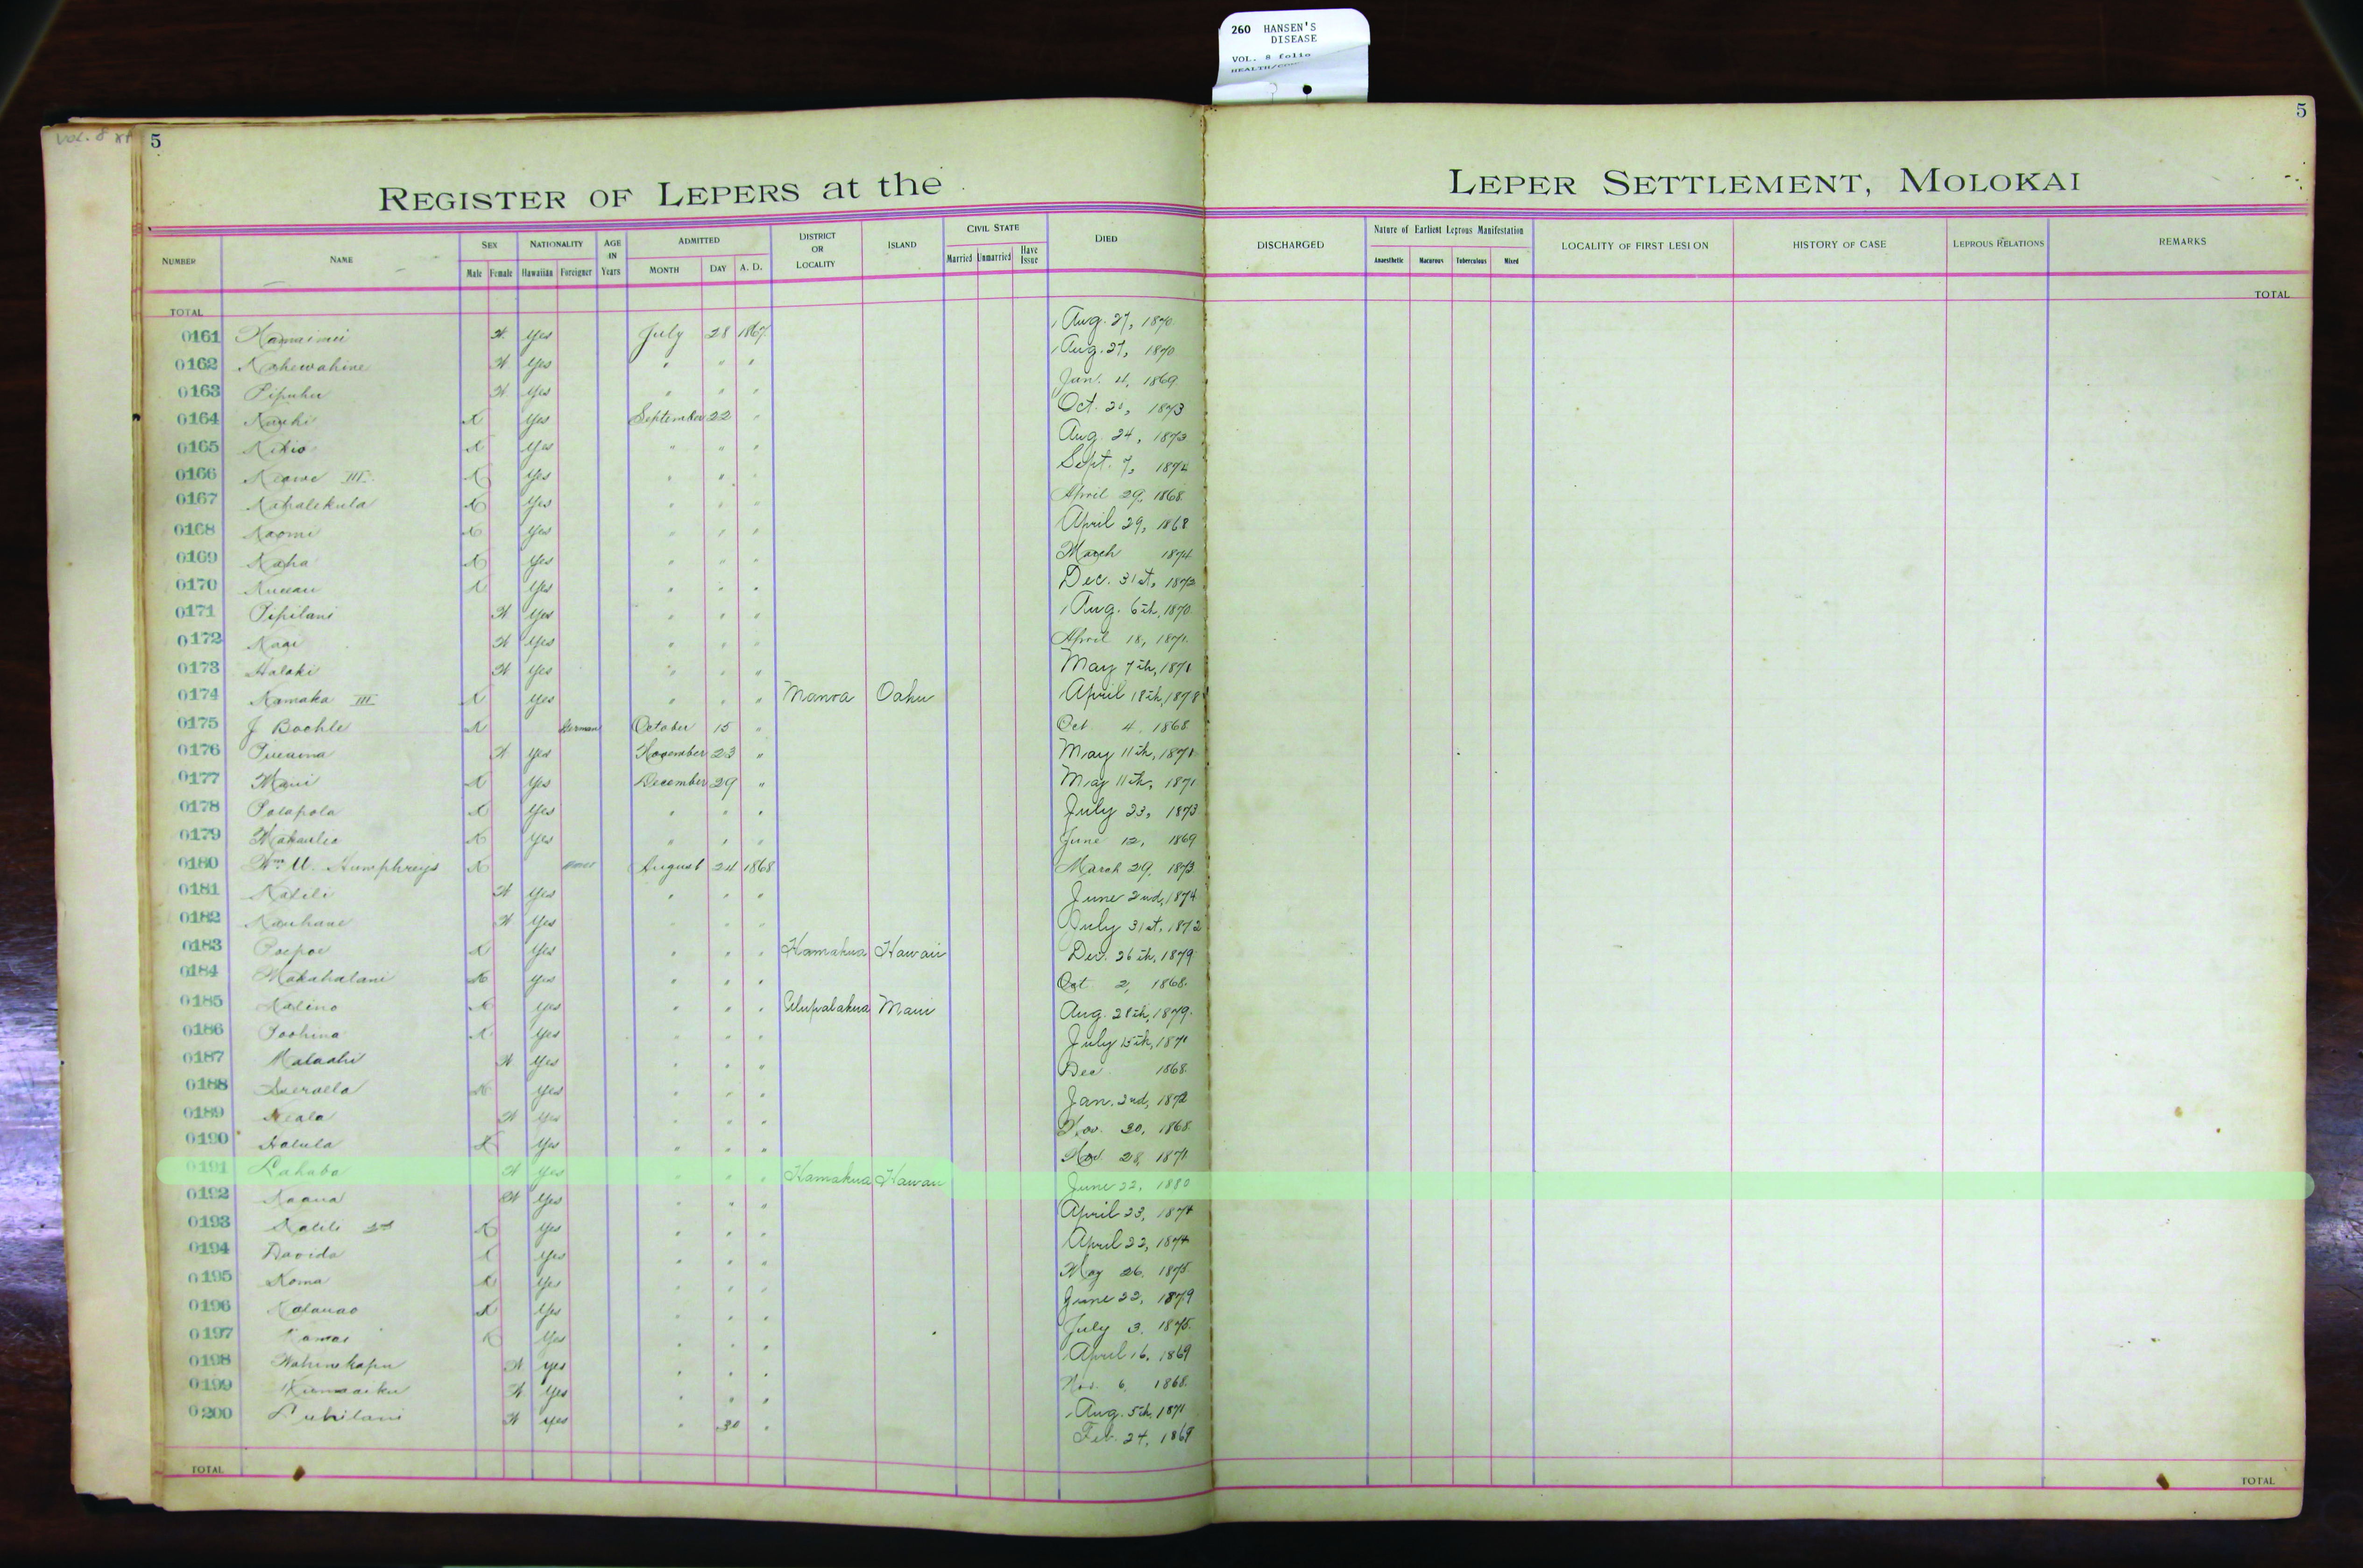 260 HANSEN'S
DISEASE
VOL. 8 folio
VOL. 8
5
5
REGISTER OF LEPERS at the LEPER SETTLEMENT, MOLOKAI
NUMBER NAME SEX Male Female NATIONALITY Hawaiian Foreigner AGE IN Years ADMITTED MONTH DAY A. D. DISTRICT OR LOCALITY ISLAND CIVIL STATE Married Unmarried Have Issue DIED DISCHARGED Nature of Earliest Leprous Manifestation Anaesthetic Macurous Tuberculous Mixed LOCALITY OF FIRST LESION HISTORY OF CASE LEPROUS RELATIONS REMARKS
TOTAL TOTAL
0161 Yes July 28 1867 Aug. 27, 1870
0162 Kahewahine Yes " " " Aug. 27, 1870
0163 Pipuhu Yes " " " Jan. 4, 1869
0164 Yes September 22 " Oct. 1873
0165 Yes " " " Aug. 24,
0166 Keawe III Yes " " " Sept. 7,
0167 Yes " " " April 29, 1868
0168 Naomi Yes " " " April 29, 1868
0169 Yes " " " March 1874
0170 Yes " " " Dec. 31st,
0171 Pipilani Yes " " " Aug. 6th, 1870
0172 Yes " " " April 18, 1871
0173 Halaki Yes " " " May 7th, 1871
0174 Kamaka III Yes " " " Manoa Oahu April 18th, 1878
0175 J Boehle German October 15 " Oct 4, 1868
0176 Yes November 23 " May 11th, 1871
0177 Maui Yes December 29 " May 11th, 1871
0178 Polapola Yes " " " July 23, 1873
0179 Yes " " " June 12, 1869
0180 Wm. Humphreys August 24 1868 March 29, 1873
0181 Yes " " " June 2nd, 1874
0182 Kauhane Yes " " " July 31st, 1872
0183 Poepoe Yes " " " Hamakua Hawaii Dec. 26th, 1879
0184 Makahalani Yes " " " Oct 2, 1868
0185 Kalino Yes " " " Ulupalakua Maui Aug. 28th, 1879
0186 Poohina Yes " " " July 15th, 1871
0187 Malaahi Yes " " " Dec 1868
0188 Yes " " " Jan. 2nd, 1872
0189 Yes " " " Nov. 30, 1868
0190 Yes " " " Nov. 28, 1871
0191 Yes " " " Hamakua Hawaii June 22, 1880
0192 Kaaua Yes " " " April 23, 1874
0193 Kalili 2nd Yes " " " April 22, 1874
0194 Davida Yes " " " May 26, 1875
0195 Koma Yes " " " June 22, 1879
0196 Yes " " " July 3, 1875
0197 Yes " " " April 16, 1869
0198 Wahinekapu Yes " " " Nov. 6, 1868
0199 Yes " " " Aug. 5th, 1871
0200 Yes " 30 " Feb. 24, 1869
TOTAL TOTAL